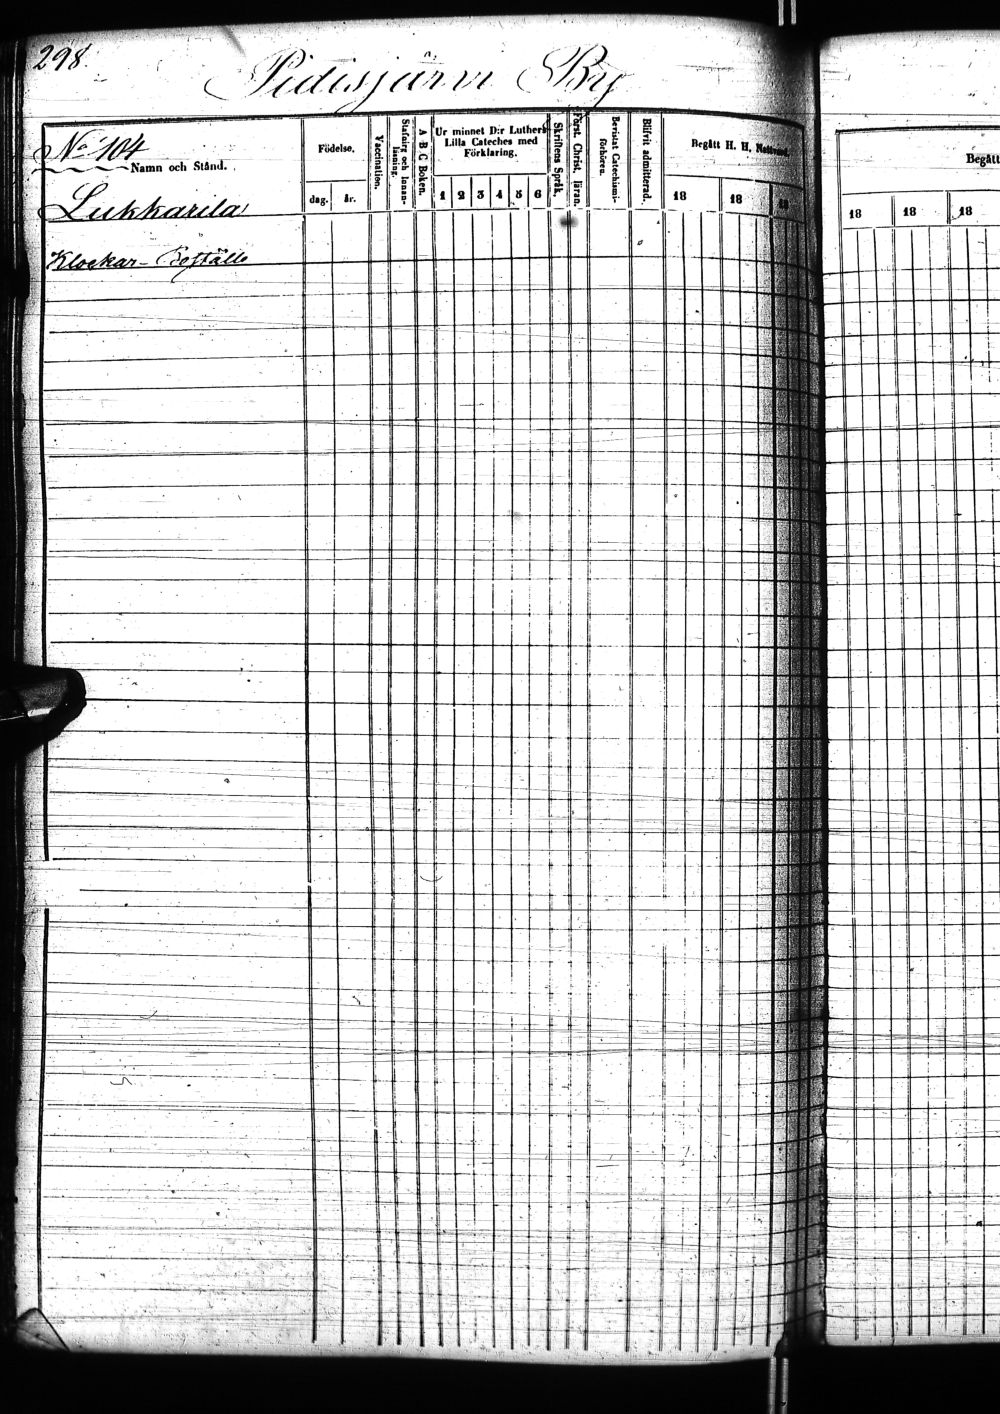 298.
Pidisjärvi By
No 104
Namn och Stånd.
Födelse.
dag. år.
Vaccination.
Stafning och Innan-
läsning.
A B C Boken.
Ur minnet D:r Luthers
Lilla Cateches med
Förklaring.
1 2 3 4 5 6
Skriftens Språk.
Först. Christ. läran.
Bevistat Catechismi-
förhören.
Blifvit admitterad.
Begått H. H. Nattvard.
18 18 18
Lukkarila
Klockar-Boställe
Begått
18 18 18